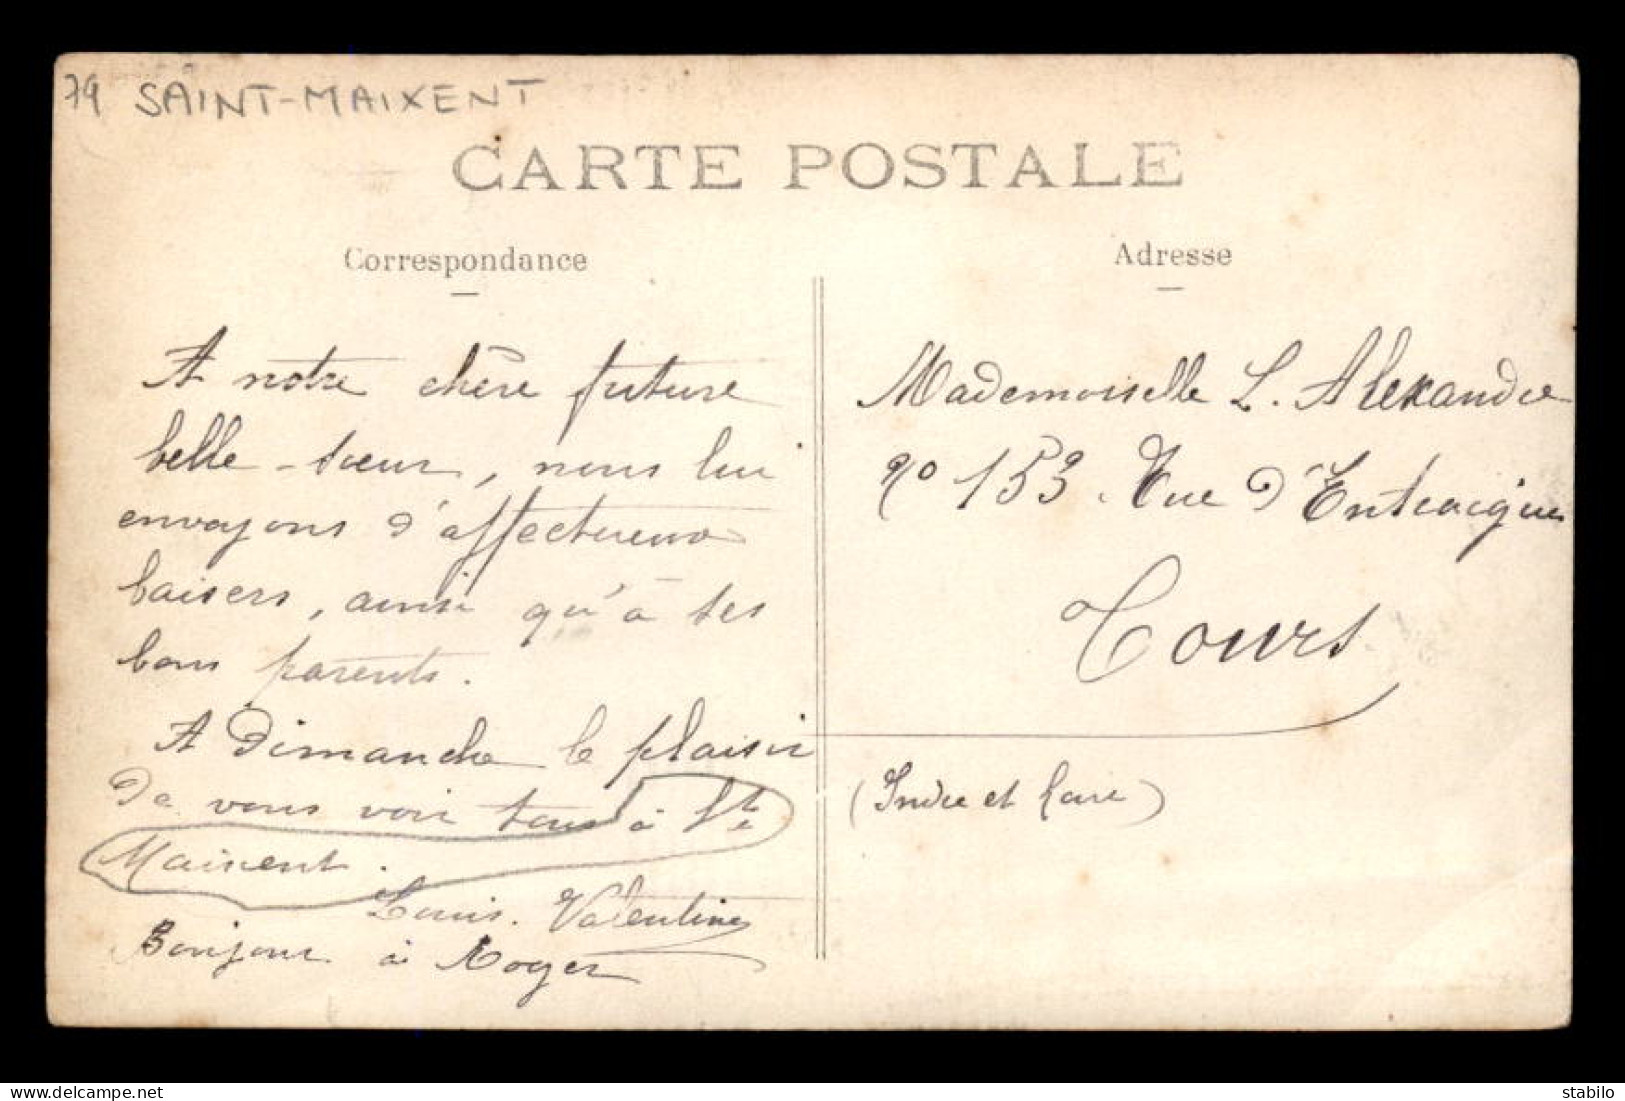 79 SAINT-MAIXENT
CARTE POSTALE
Correspondance
A notre chère future
belle-sœur, nous lui
envoyons d'affectueux
baisers, ainsi qu'à ses
bons parents.
A dimanche le plaisir
de vous voir tous à St
Maixent.
Louis. Valentine
Bonjour à Roger
Adresse
Mademoiselle L. Alexandre
No 153. Rue d'Entraigues
Tours
(Indre et Loire)
delcampe.net
stabilo